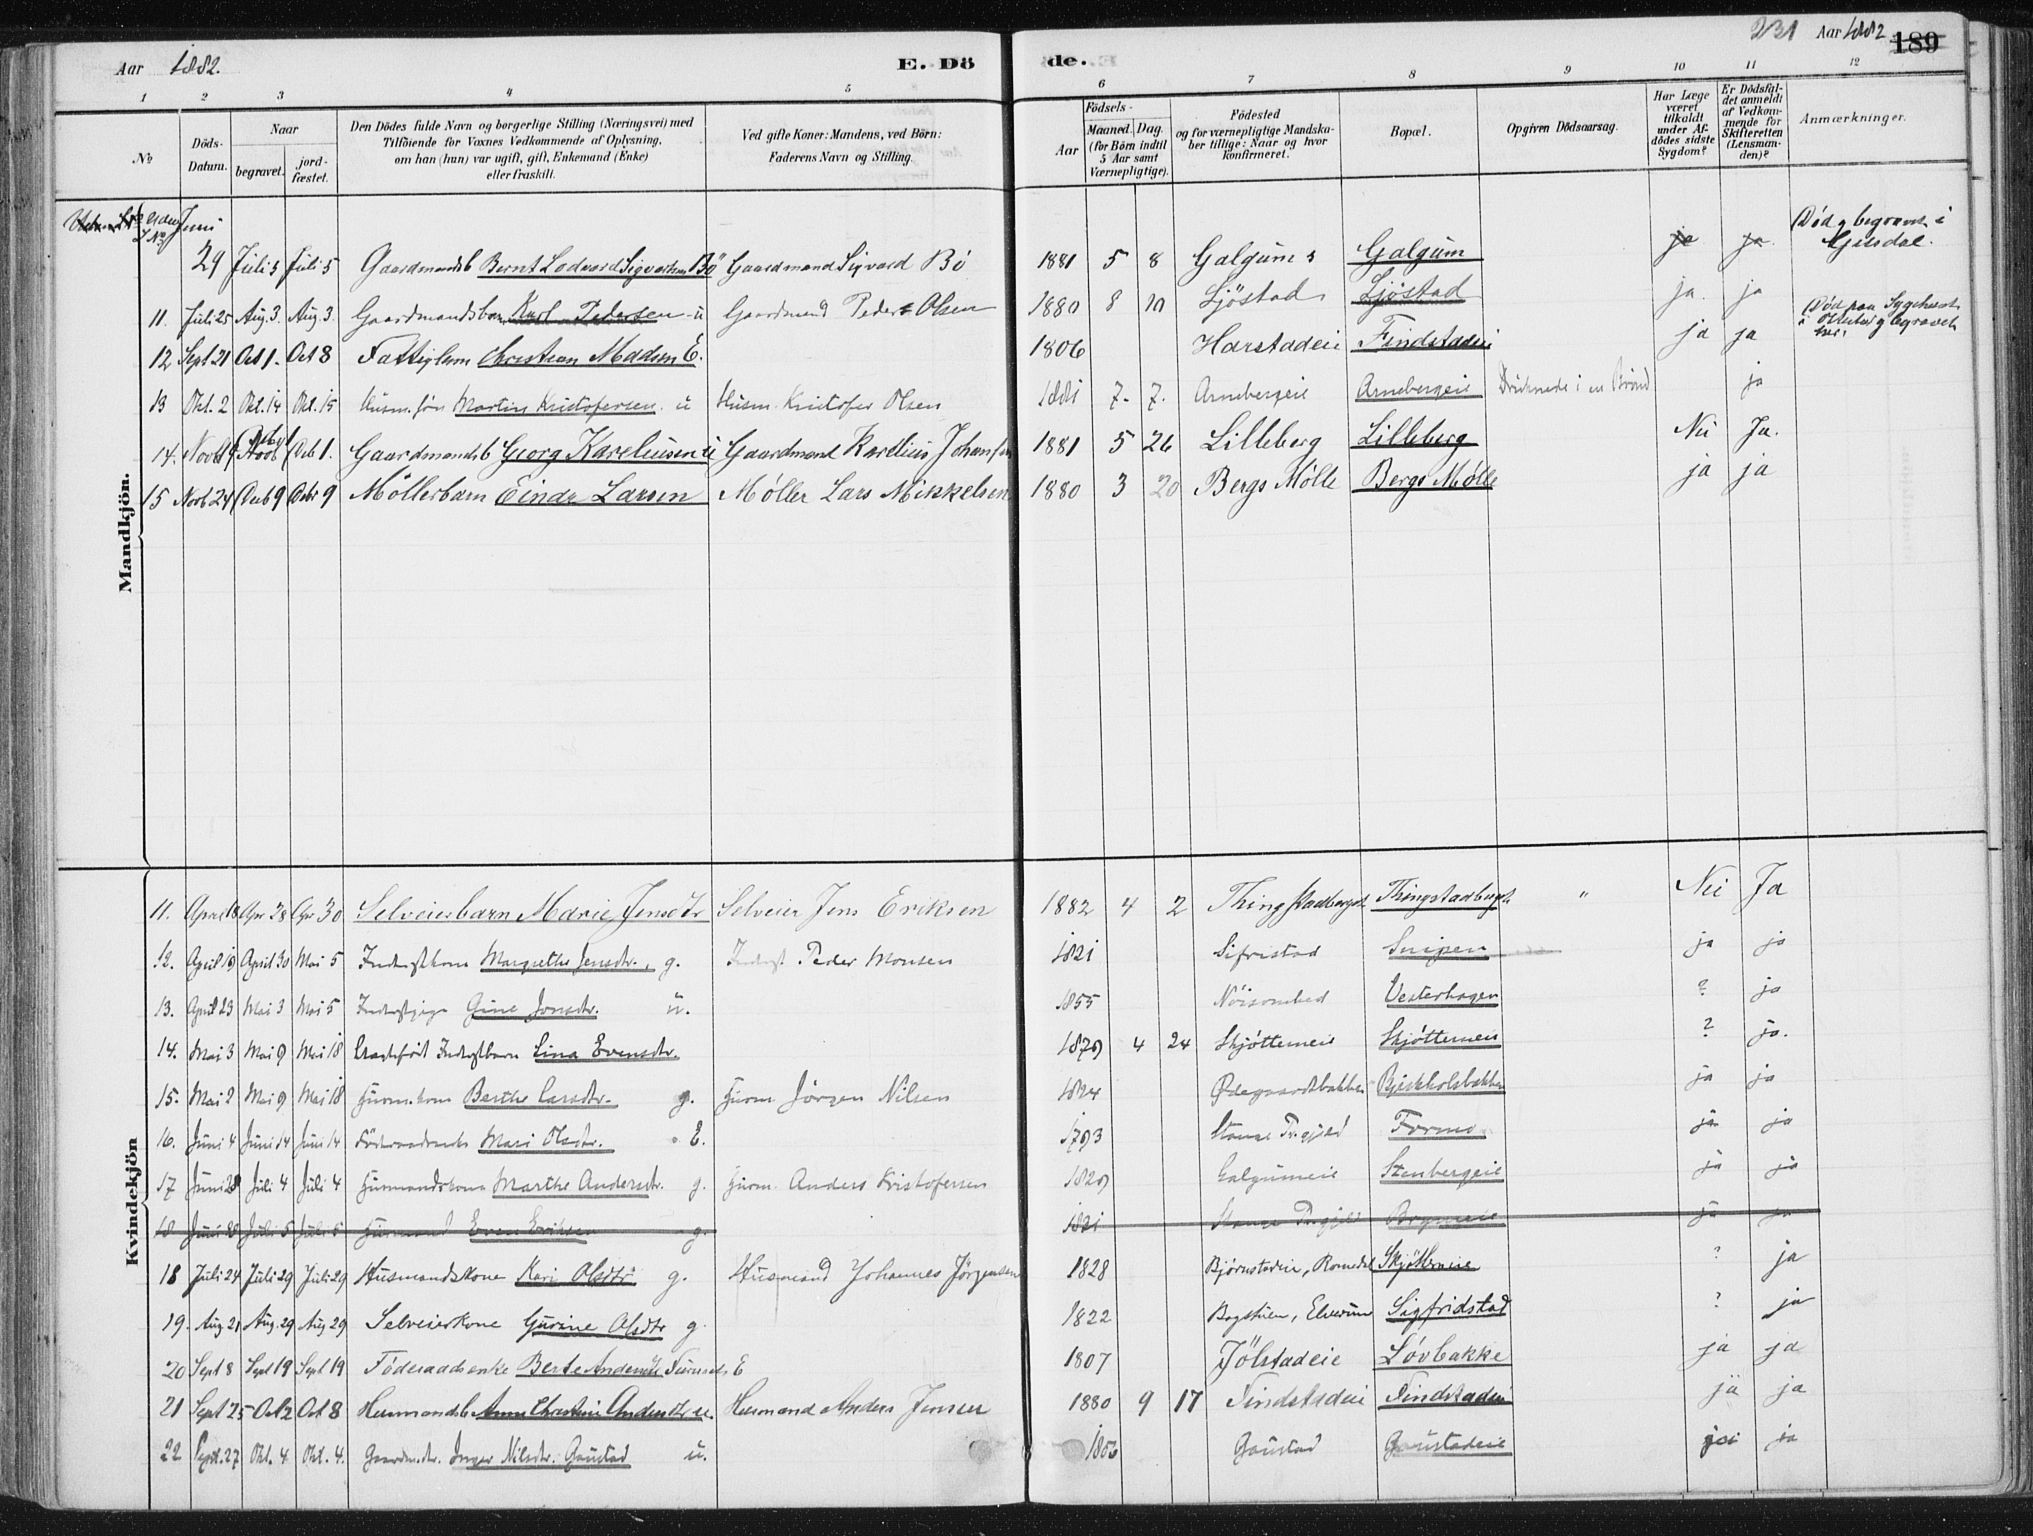 Aar 1882. E. Dö
de. 231 Aar 1882 189
1 2 3 4 5 6 7 8 9 10 11 12
№
Döds-Datum.
Naar
begravet. jord-fæstet.
Den Dödes fulde Navn og borgerlige Stilling (Næringsvei) med
Tilföiende for Voxnes Vedkommende af Oplysning,
om han (hun) var ugift, gift, Enkemand (Enke)
eller fraskilt.
Ved gifte Koner: Mandens, ved Börn:
Faderens Navn og Stilling.
Födsels-
Aar
Maaned. Dag.
(for Börn indtil
5 Aar samt
Værnepligtige).
Födested
og for værnepligtige Mandska-
ber tillige: Naar og hvor
konfirmeret.
Bopæl.
Opgiven Dödsaarsag.
Har Læge
været
tilkaldt
under Af-
dödes sidste
Sygdom?
Er Dödsfal-
det anmeldt
af Vedkom-
mende for
Skifteretten
(Lensman-
den)?
Anmærkninger.
Mandkjön.
Uden No Juni
29 Juli 5 Juli 5 Gaardmandsb Bernt Lodvard Sigvartsen Bö Gaardmand Sigvard Bö 1881 5 8 Galgum Galgum ja ja Död og begravet i Gjesdal.
11. Juli 25 Aug. 3. Aug. 3. Gaardmandsbarn Karl Pedersen u Gaardmand Peder Olsen 1880 8 10 Ljöstad Ljöstad ja ja
12 Sept 21 Oct 1. Oct 8 Fattiglem Christian Madsen E. 1806 Harstadeie Findstadeie ja ja Död paa Sygehuset i og begravet her.
13 Okt. 2 Okt. 14 Okt. 15 Husm. sön Martin Kristofersen u Husm. Kristofer Olsen 1881 7. 7. Arnebergeie Arnebergeie Druknede i en Brönd ja
14. Novb 19 Decb 1. Gaardmandsb Georg Kareliusen u Gaardmand Karelius Johansen 1881 5 26 Lilleberg Lilleberg Nei Ja.
15 Novb 24 Decb 9 Decbr 9 Möllerbarn Einar Larsen Møller Lars Mikkelsen 1880 3 20 Bergs Mölle Bergs Mölle ja ja
Kvindekjön
11. April 18 Apr 28 Apr 30 Selveierbarn Marie Jensdtr Selveier Jens Eriksen 1882 4 2 Thingstadberget Thingstadberget " Nei Ja
12. April 19 April 30 Mai 5 Inderstkone Margrethe Jensdtr. g. Inderst Peder Monsen 1821 Sifristad Snipen ja ja
13. April 23 Mai 3 Mai 5 Inderstpige Gine Jonsdtr. u. 1855 Nöisomhed Vesterhagen ? ja
14. Mai 3 Mai 9 Mai 18 Uægteföd Inderstbarn Lina Evensdtr. 1879 4 24 Skjötterneie Skjötterneie ? ja.
15. Mai 2 Mai 9 Mai 18 Husm.kone Berthe Larsdtr. g. Husm Jörgen Nilsen 1824 Ødegaardsbakken Bjerkholsbakken ja ja
16. Juni 4 Juni 14 Juni 14 Föderaadsenke Mari Olsdtr. E. 1793 Stange Prgjeld Formo ja ja
17 Juni 28 Juli 4 Juli 4 Husmandskone Marthe Andersdtr. g. Husm. Anders Kristofersen 1829 Galgumeie Stenbergeie ja ja
18 Juni 28 Juli 5 Juli 5 Husmand Even Eriksen g. 1821 Stange Prgjeld ja ja
18 Juli 24 Juli 29 Juli 29 Husmandskone Kari Olsdtr g. Husmand Johannes Jörgensen 1828 Björnstadeie, Romedal Skjötterneie ? ja
19. Aug 21 Aug. 29 Aug 29 Selveierkone Gurine Olsdtr g. 1822 Bagstuen, Elverum Sigfridstad ? ja
20 Sept 8 Sept 19 Sept 19 Föderaadsenke Berte Andersdtr E 1807 Jölstadeie Lövbakke ja ja
21 Sept 25 Oct 2 Oct 8 Husmandsb Anne Christine Andersdtr u. Husmand Anders Jensen 1880 9 17 Findstadeie Findstadeie ja ja
22 Sept. 27 Okt. 4 Okt. 4. Gaardm.dtr. Inger Nilsdtr. Gaustad u. 1856 Gaustad Gaustadeie ja